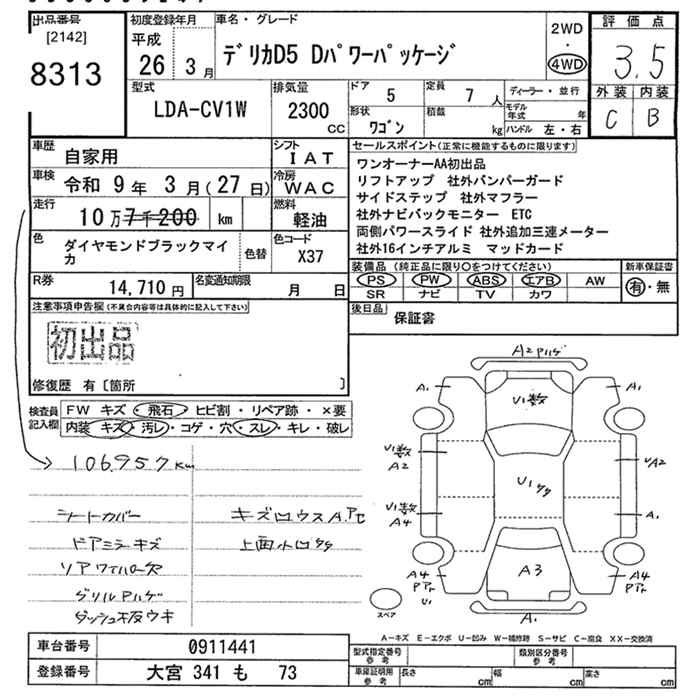 出品番号
[2142]
8313
初度登録年月
平成
26 3月
車名・グレード
デリカD5 Dパワーパッケージ
2WD
・
4WD
評価点
3.5
外装 内装
C B
型式
LDA-CV1W
排気量
2300
cc
ドア 5
定員 7 人
ディーラー・並行
モデル年式 年
形状 ワゴン
積載 kg
ハンドル 左・右
車歴 自家用
シフト IAT
車検 令和 9年 3月(27日)
冷房 WAC
走行 10万7千200 km
燃料 軽油
色 ダイヤモンドブラックマイカ
色替
色コード X37
R券 14,710円
名変通知期限 月 日
セールスポイント(正常に機能するものに限ります)
ワンオーナーAA初出品
リフトアップ 社外バンパーガード
サイドステップ 社外マフラー
社外ナビバックモニター ETC
両側パワースライド 社外追加三連メーター
社外16インチアルミ マッドカード
装備品(純正品に限り○をつけてください)
PS PW ABS エアB AW
SR ナビ TV カワ
新車保証書
有・無
後日品 保証書
注意事項申告欄(不具合内容等は具体的に記入して下さい)
初出品
修復歴 有[箇所 ]
検査員記入欄
FW キズ・飛石・ヒビ割・リペア跡・×要
内装 キズ・汚レ・コゲ・穴・スレ・キレ・破レ
106,957km
シートカバー
ドアミラーキズ
ソアワイパー欠
グリルAハゲ
ダッシュ板ウキ
上面小凹
A2
A1
A1
U1数
U1数
A2
UA2
U1
U1数
A4
A1
A3
A4
U1
A4
A1
スペア
A－キズ E－エクボ U－凹み W－補修跡 S－サビ C－腐食 XX－交換済
車台番号 0911441
登録番号 大宮 341 も 73
型式指定番号 参考
類別区分番号 参考
車庫証明用 参考
長さ cm
幅 cm
高さ cm